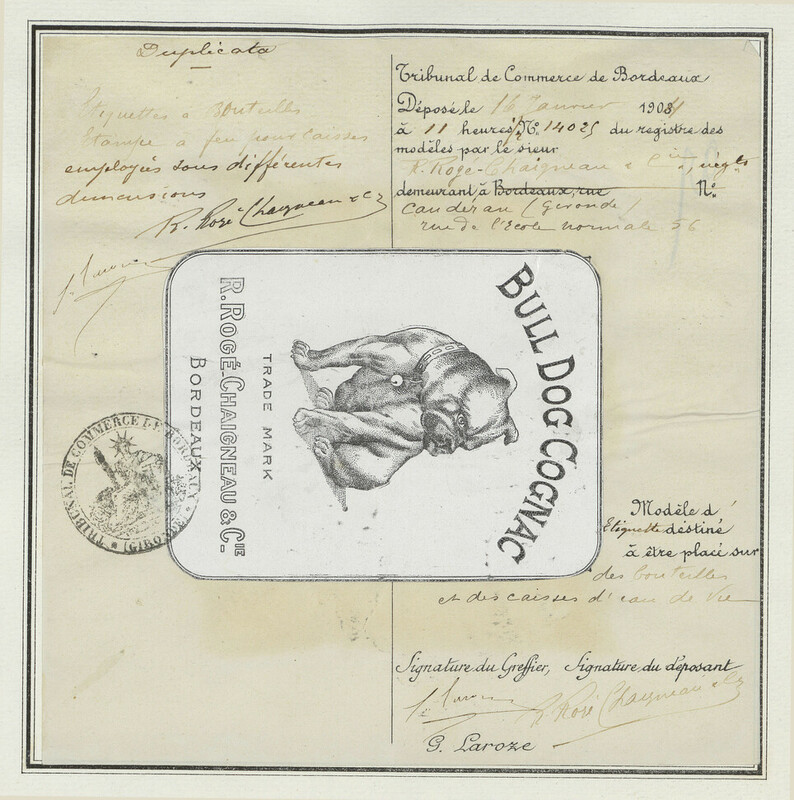 Duplicata
Etiquettes à Bouteilles
Etampe à feu pour caisses
employés sous différentes
dimensions
R. Rogé-Chaigneau & Cie
Tribunal de Commerce de Bordeaux
Déposé le 16 Janvier 1904
à 11 heures 1/2 No. 14025 du registre des
modèles par le sieur
R. Rogé-Chaigneau & Cie, négts
demeurant à Bordeaux, rue No.
Caudéran (Gironde)
rue de l'Ecole normale 56
BULL DOG COGNAC
TRADE MARK
R. ROGÉ-CHAIGNEAU & CIE
BORDEAUX
TRIBUNAL DE COMMERCE DE BORDEAUX
* (GIRONDE) *
Modèle d'
Etiquette destiné
à être placé sur
des bouteilles
et des caisses d'eau de Vie
Signature du Greffier, Signature du déposant
R. Rogé Chaigneau & Cie
G. Laroze